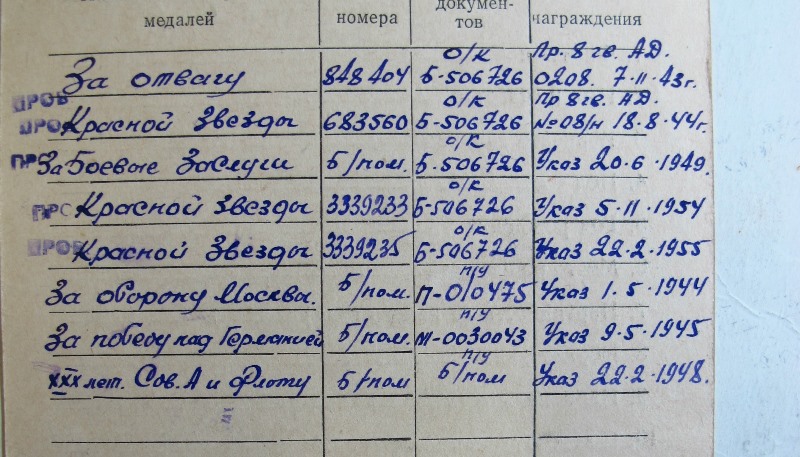 медалей номера докумен-тов награждения
За отвагу 848404 о/к Б-506726 Пр. 8 гв. АД. 0208. 7·11·43г.
ПРОВ
ПРО Красной Звезды 683560 о/к Б-506726 Пр 8 гв. АД. №08/н 18·8·44г.
ПРО За Боевые Заслуги Б/ном. о/к Б-506726 Указ 20·6·1949.
ПРО Красной Звезды 3339233 о/к Б-506726 Указ 5·11·1954
ПРОВ Красной Звезды 3339235 о/к Б-506726 Указ 22·2·1955
За оборону Москвы. Б/ном. п/у П-010475 Указ 1·5·1944
За победу над Германией Б/ном. п/у М-0030043 Указ 9·5·1945
XXX лет. Сов. А и Флоту Б/ном п/у Б/ном Указ 22·2·1948.